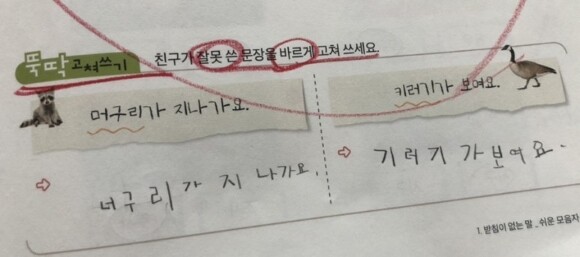 뚝딱 고쳐쓰기 친구가 잘못 쓴 문장을 바르게 고쳐 쓰세요.
머구리가 지나가요.
키러기가 보여요.
너구리가 지나가요.
기러기가 보여요.
1. 받침이 없는 말 _ 쉬운 모음자